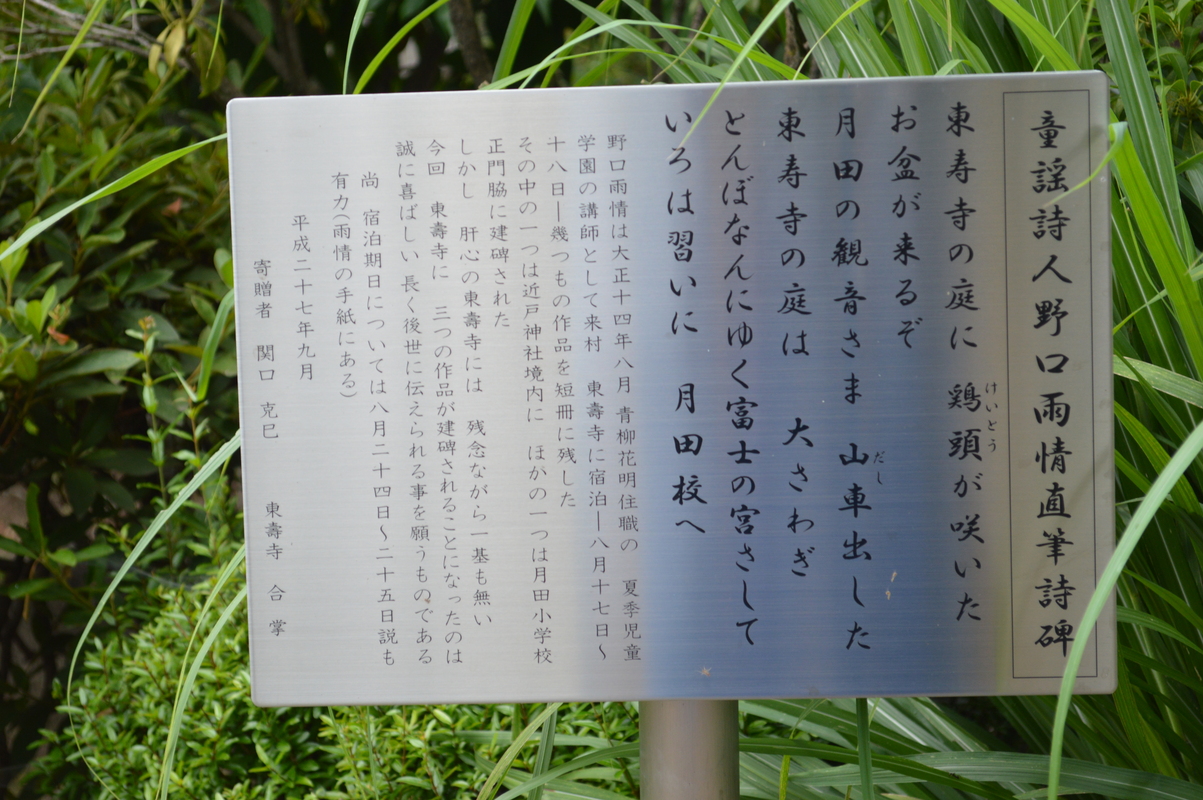 童謡詩人野口雨情直筆詩碑
東寿寺の庭に 鶏頭が咲いた
けいとう
お盆が来るぞ
月田の観音さま 山車出した
だし
東寿寺の庭は 大さわぎ
とんぼなんにゆく富士の宮さして
いろは習いに 月田校へ
野口雨情は大正十四年八月 青柳花明住職の 夏季児童
学園の講師として来村 東壽寺に宿泊―八月十七日〜
十八日―幾つもの作品を短冊に残した
その中の一つは近戸神社境内に ほかの一つは月田小学校
正門脇に建碑された
しかし 肝心の東壽寺には 残念ながら一基も無い
今回 東壽寺に 三つの作品が建碑されることになったのは
誠に喜ばしい 長く後世に伝えられる事を願うものである
尚 宿泊期日については八月二十四日〜二十五日説も
有力(雨情の手紙にある)
平成二十七年九月
寄贈者 関口 克巳 東壽寺 合掌